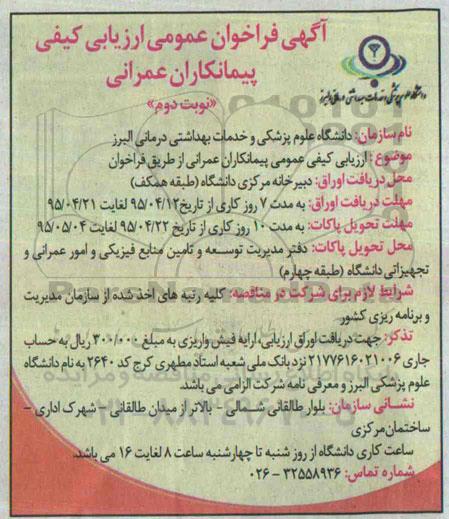 آگهی فراخوان عمومی ارزیابی کیفی
پیمانکاران عمرانی
«نوبت دوم»
دانشگاه علوم پزشکی و خدمات بهداشتی درمانی البرز
نام سازمان: دانشگاه علوم پزشکی و خدمات بهداشتی درمانی البرز
موضوع: ارزیابی کیفی عمومی پیمانکاران عمرانی از طریق فراخوان
محل دریافت اوراق: دبیرخانه مرکزی دانشگاه (طبقه همکف)
مهلت دریافت اوراق: به مدت ۷ روز کاری از تاریخ ۹۵/۰۴/۱۲ لغایت ۹۵/۰۴/۲۱
مهلت تحویل پاکات: به مدت ۱۰ روز کاری از تاریخ ۹۵/۰۴/۲۲ لغایت ۹۵/۰۵/۰۴
محل تحویل پاکات: دفتر مدیریت توسعه و تامین منابع فیزیکی و امور عمرانی و
تجهیزاتی دانشگاه (طبقه چهارم)
شرایط لازم برای شرکت در مناقصه: کلیه رتبه های اخذ شده از سازمان مدیریت
و برنامه ریزی کشور.
تذکر: جهت دریافت اوراق ارزیابی، ارایه فیش واریزی به مبلغ ۳۰۰/۰۰۰ ریال به حساب
جاری ۲۱۷۷۶۱۶۰۲۱۰۰۶ نزد بانک ملی شعبه استاد مطهری کرج کد ۲۶۴۰ به نام دانشگاه
علوم پزشکی البرز و معرفی نامه شرکت الزامی می باشد.
نشانی سازمان: بلوار طالقانی شمالی - بالاتر از میدان طالقانی - شهرک اداری -
ساختمان مرکزی
ساعت کاری دانشگاه از روز شنبه تا چهارشنبه ساعت ۸ لغایت ۱۶ می باشد.
شماره تماس: ۳۲۵۵۸۹۳۶ - ۰۲۶